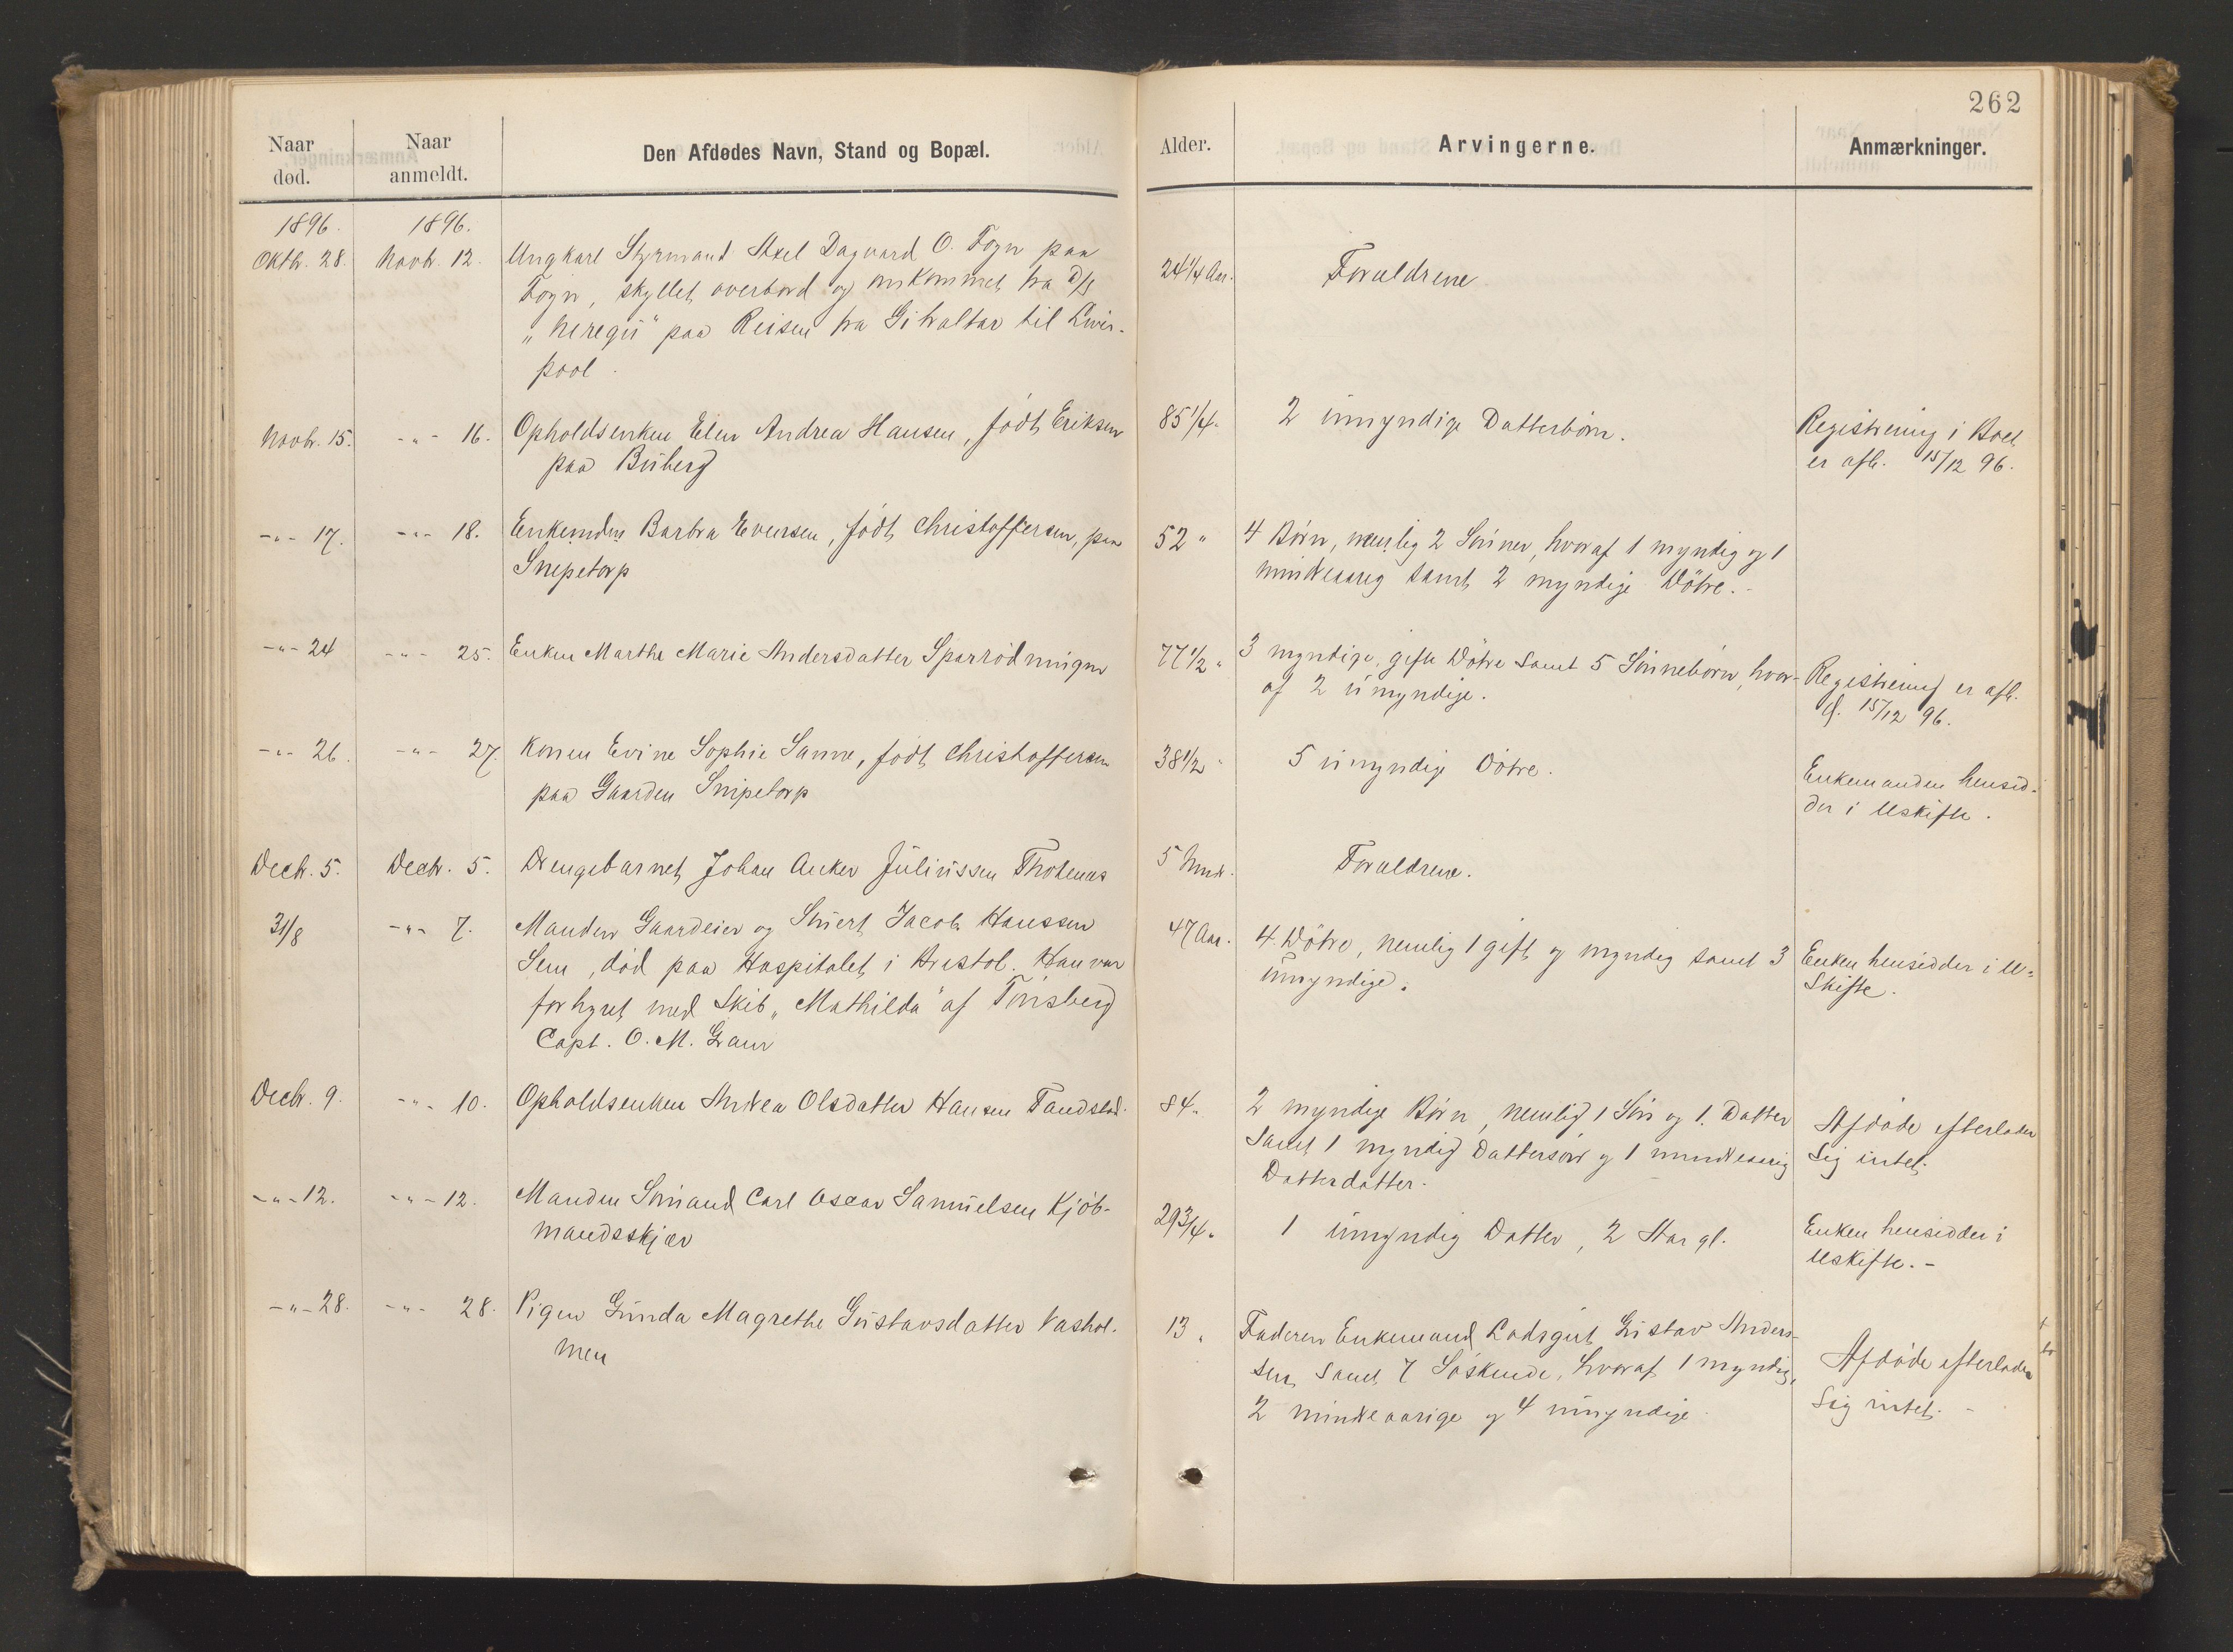 262
Naar død.
Naar anmeldt.
Den Afdødes Navn, Stand og Bopæl.
Alder.
Arvingerne.
Anmærkninger.
1896. 1896.
Oktbr. 28. Novbr. 12. Ungkarl Styrmand Axel Dagvard O. Fogn paa
Fogn, skyllet overbord og omkommet fra D/S
paa Reisen fra Gibraltar til Liver-
pool.
24 1/4 Aar. Forældrene
Novbr. 15. -"- 16. Opholdsenken Elen Andrea Hansen, født Eriksen
paa Buberg
85 1/4 " 2 umyndige Datterbørn.
Registrering i Boet
er afh. 15/12 96.
-"- 17. -"- 18. Barbra Evensen, født Christoffersen, paa
Snipetorp
52 " 4 Børn, nemlig 2 Sønner, hvoraf 1 myndig og 1
mindreaarig samt 2 myndige Døtre.
-"- 24 -"- 25. Enken Marthe Marie Andersdatter
77 1/2 " 3 myndige, gifte Døtre samt 5 Sønnebørn, hvor-
af 2 umyndige.
Registrering er afh.
d. 15/12 96.
-"- 26. -"- 27. Konen Evine Sophie Sanne, født Christoffersen
paa Gaarden Snipetorp
38 1/2 " 5 umyndige Døtre.
Enkemanden hensid-
der i Uskifte.
Decbr. 5. Decbr. 5. Drengebarnet Johan Anker Juliussen
5 Mndr. Forældrene.
31/8 -"- 7. Manden Gaardeier og Stuert Jacob Hanssen
Sem, død paa Hospitalet i Bristol. Han var
forhyret med Skib „Mathilda" af Tønsberg
Capt. O. M. Gran
47 Aar. 4 Døtre, nemlig 1 gift og myndig samt 3
umyndige.
Enken hensidder i U-
Skifte.
Decbr. 9. -"- 10. Opholdsenken Andrea Olsdatter Hansen
84 " 2 myndige Børn, nemlig 1 Søn og 1. Datter
samt 1 myndig Dattersøn og 1 mindreaarig
Datterdatter.
Afdøde efterlader
sig intet.
-"- 12. -"- 12. Manden Sømand Carl Oscar Samuelsen Kjøb-
mandsskjær
29 3/4 " 1 umyndig Datter, 2 Aar gl.
Enken hensidder i
Uskifte. -
-"- 28. -"- 28. Pigen Gunda Magrethe Gustavsdatter Vashol-
men
13 " Faderen Enkemand Lodsgut Gustav Anders-
sen, samt 7 Søskende, hvoraf 1 myndig,
2 mindreaarige og 4 umyndige.
Afdøde efterlader
sig intet. -